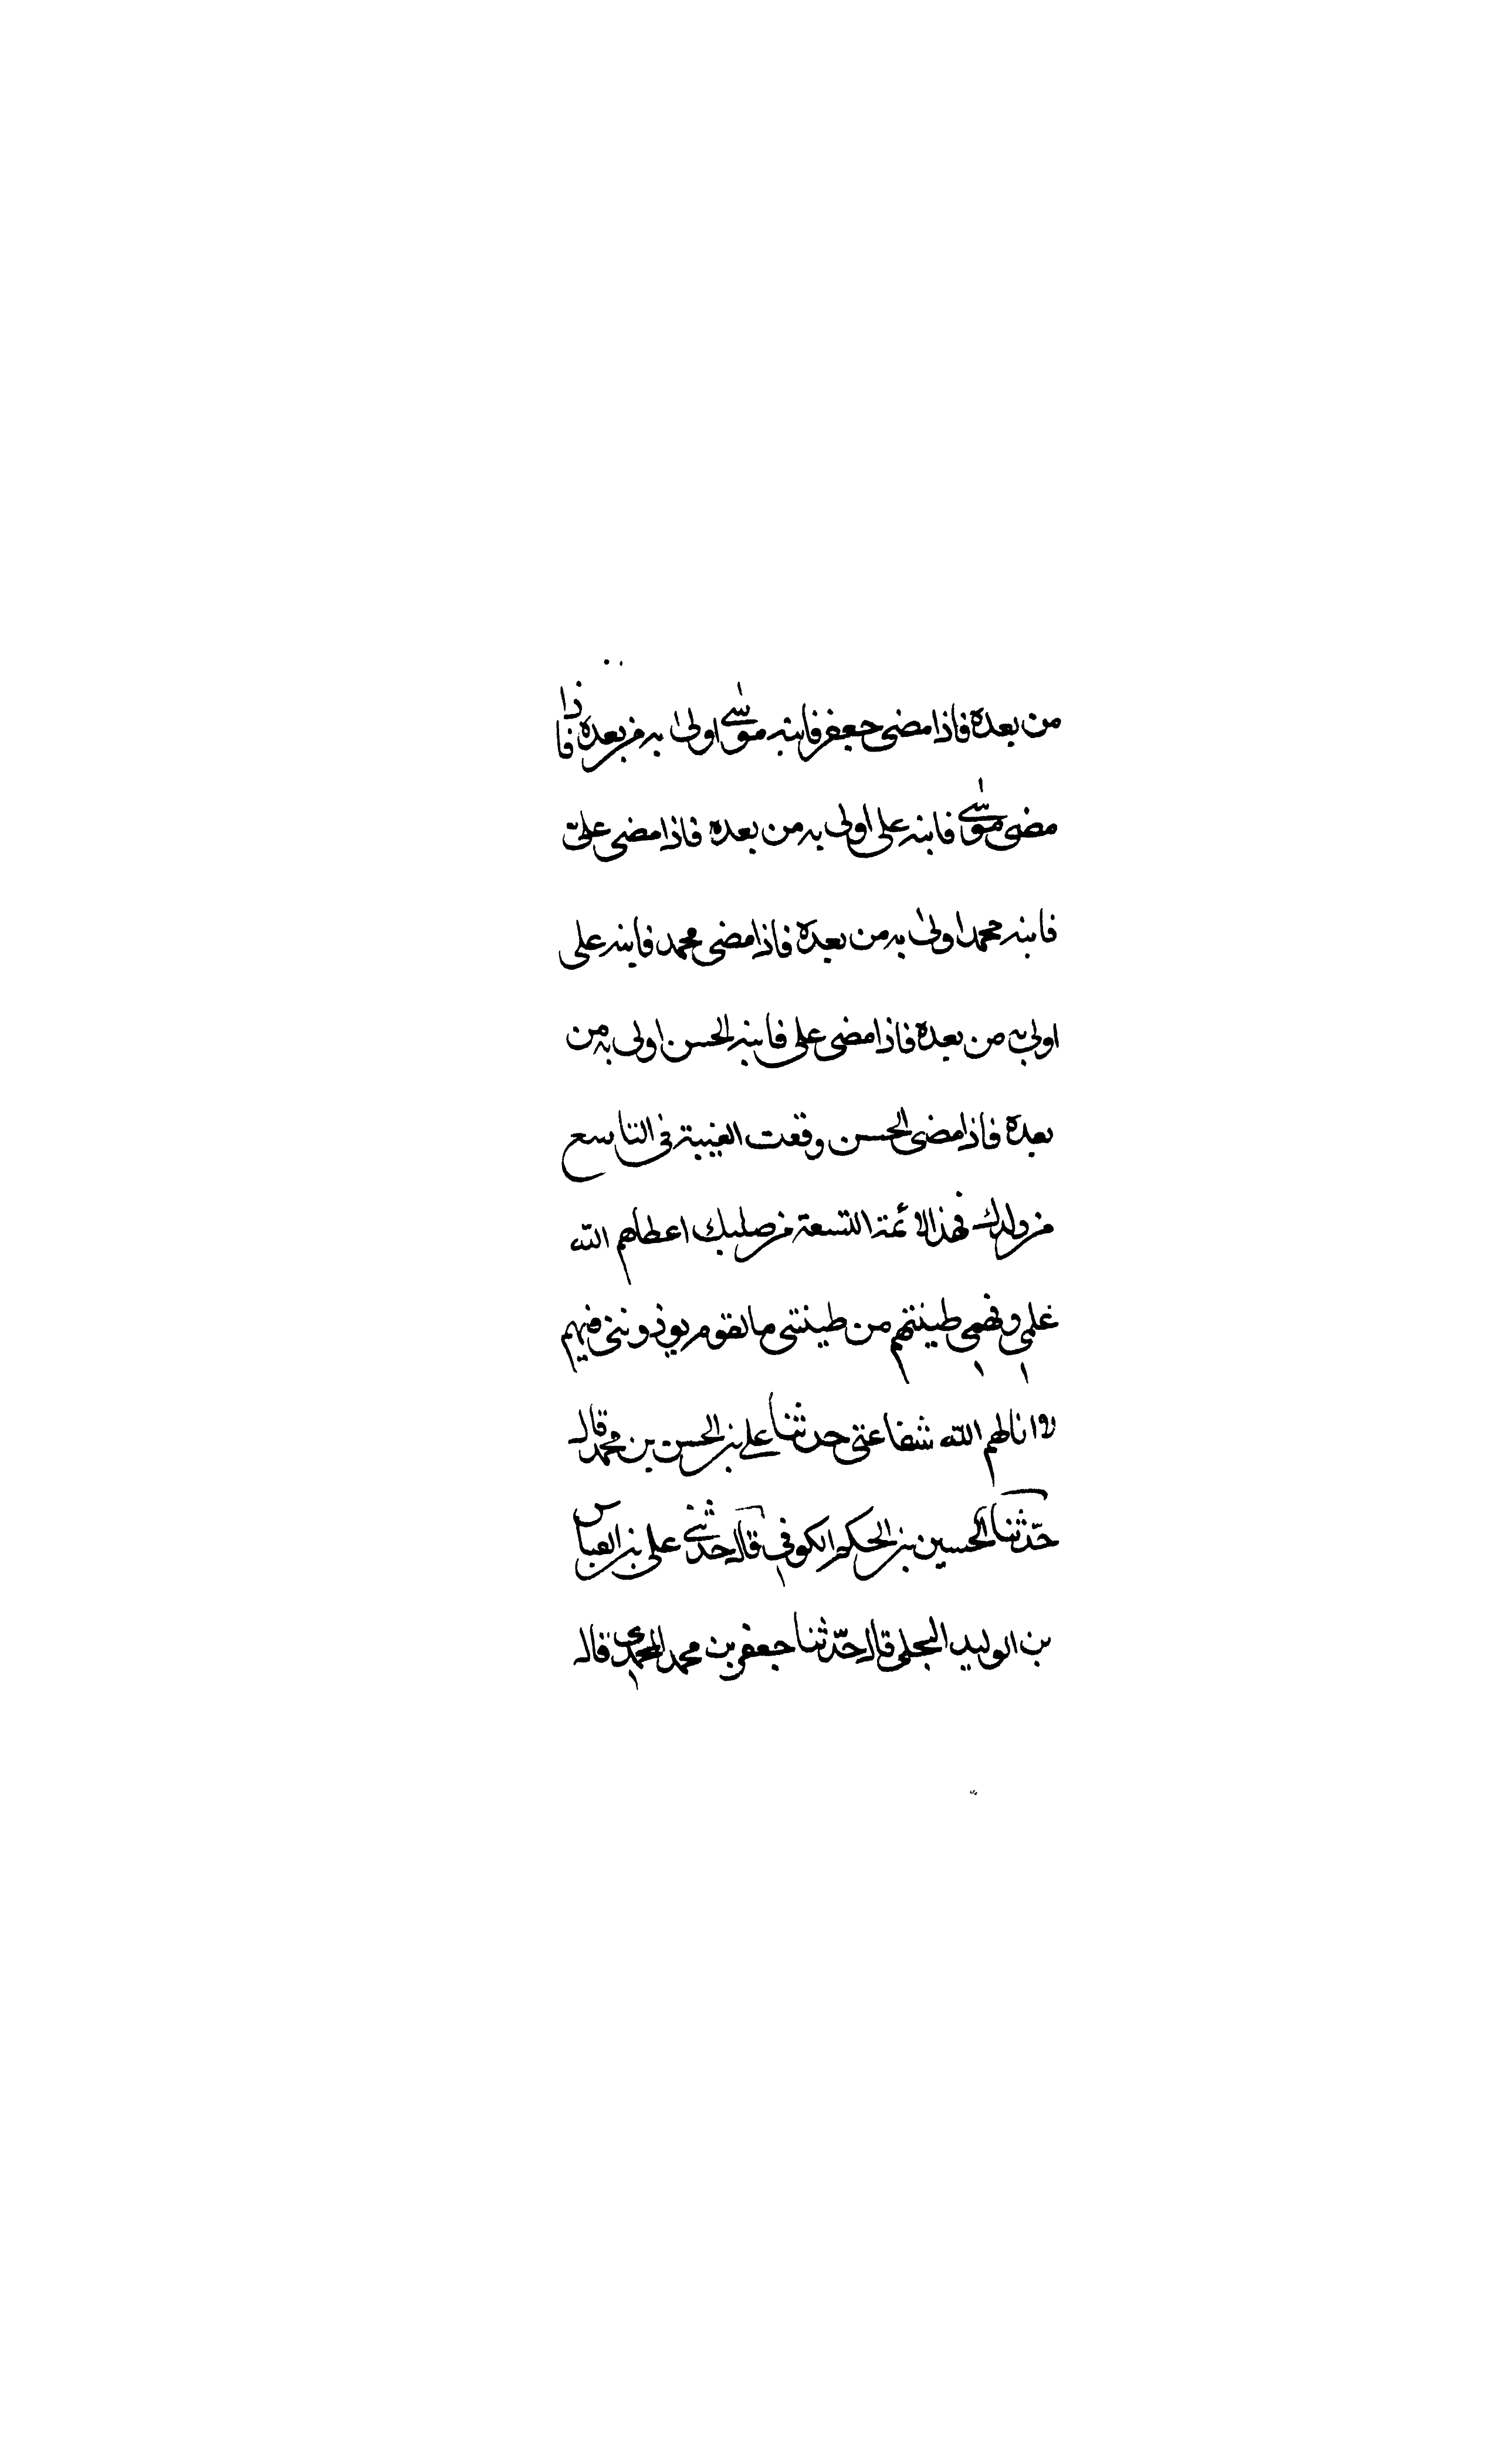 من بعده فاذا مضى جعفر فابنه موسى اولى به من بعده فاذا
مضى موسى فابنه على اولى به من بعده فاذا مضى على
فابنه محمد اولى به من بعده فاذا مضى محمد فابنه على
اولى به من بعده فاذا مضى على فابنه الحسن اولى به من
بعده فاذا مضى الحسن وقعت الغيبة فى التاسع
من ولدك فهذا الائمة التسعة من صلبك اعطاهم الله
علمى وفهمى طينتهم من طينتى ما لقوم يوذوننى فيهم
لا انالهم الله شفاعتى حدثنا على بن الحسن بن محمد قال
حدّثنا الحسين بن الحكم الكوفى قال حدثنى على بن العباس
بن الوليد البجلى قال حدّثنا جعفر بن محمد المحمدى قال